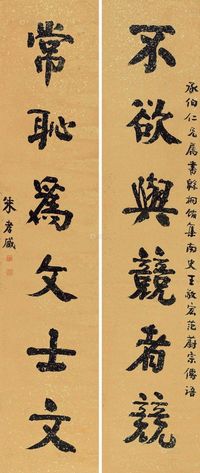 承伯仁兄属書餘𣑽館集南史王敬宏范蔚宗傳語
不欲與競者競
常恥為文士文
朱孝臧